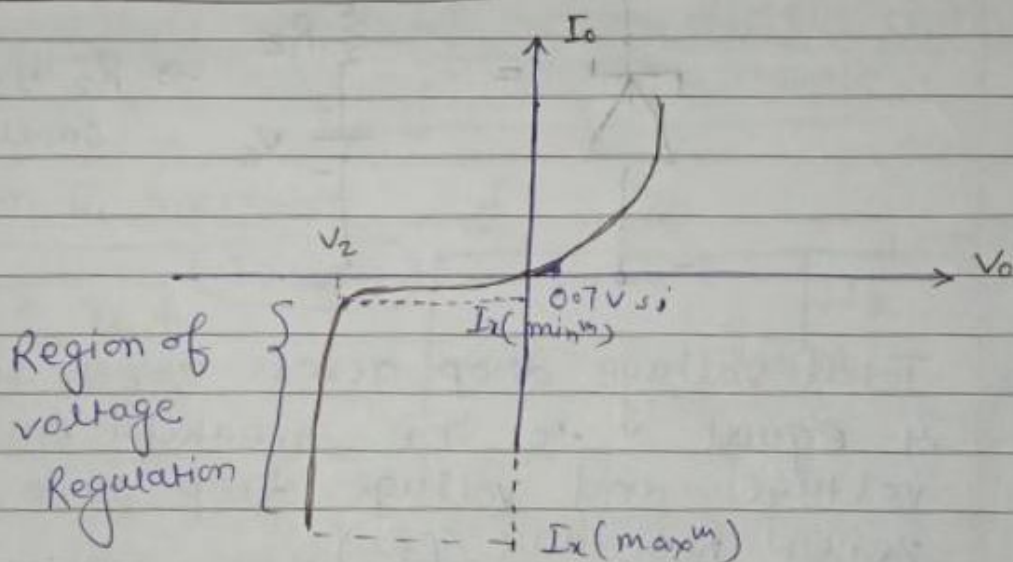 I₀
V₂
V₀
0.7V si
Iₓ(minᵐ)
Region of
voltage
Regulation
Iₓ(maxᵐ)